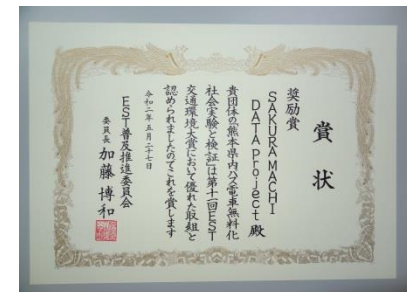 賞状
奨励賞
SAKURA MACHI
DATA Project 殿
貴団体の熊本県内バス電車無料化
社会実験と検証は第十一回EST
交通環境大賞において優れた取組と
認められましたのでこれを賞します
令和二年五月二十七日
EST普及推進委員会
委員長 加藤博和